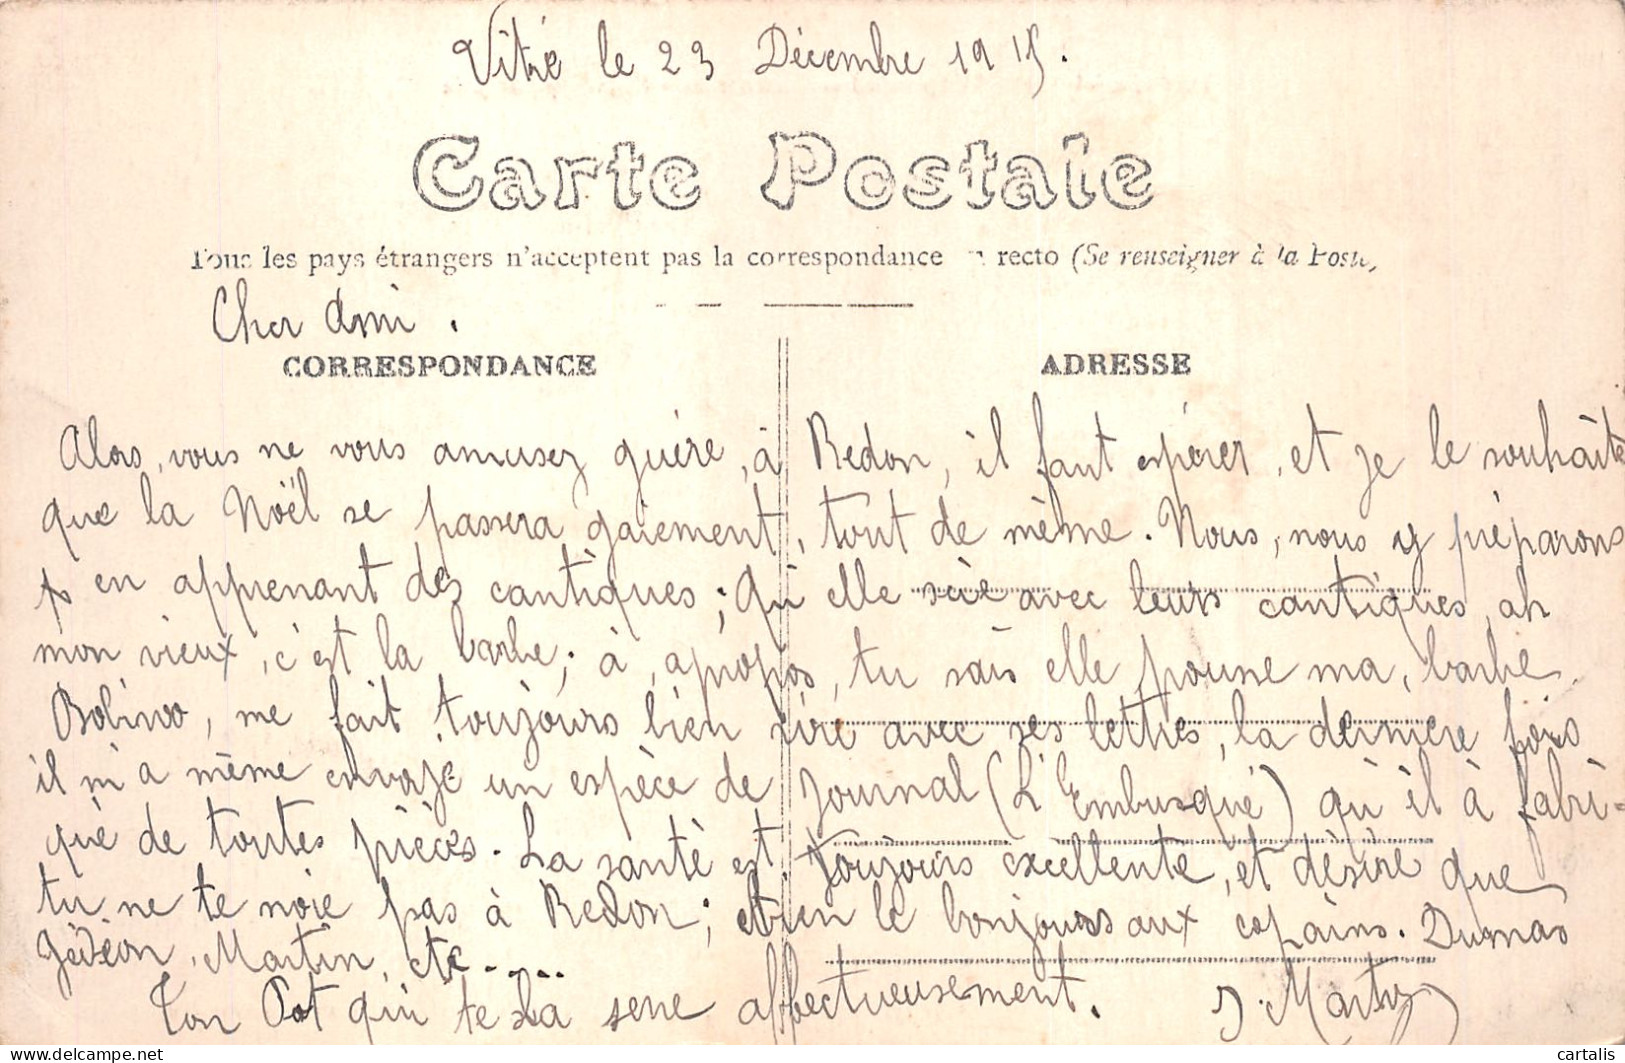 Vitré le 23 Décembre 1915.
Carte Postale
Tous les pays étrangers n'acceptent pas la correspondance recto (Se renseigner à la Poste)
Cher Ami.
CORRESPONDANCE
ADRESSE
Alors, vous ne vous amusez guère, à Redon, il faut espérer, et je le souhaite
que la Noël se passera gaiement, tout de même. Nous, nous y préparons
en apprenant des cantiques; Qu'elle scie avec leurs cantiques, ah
mon vieux, c'est la barbe; à, apropos, tu sais elle pousse ma, barbe.
me fait toujours bien rire avec ses lettres, la dernière fois
il m'a même envoyé un espèce de journal (L'Embusqué) qu'il à fabri-
qué de toutes pièces. La santé est toujours excellente, et désire que
tu ne te noie pas à Redon; bien le bonjours aux copains. Dumas
Gédéon, Martin, etc.....
Ton Pot qui te la sere affectueusement. J. Marty
cartalis